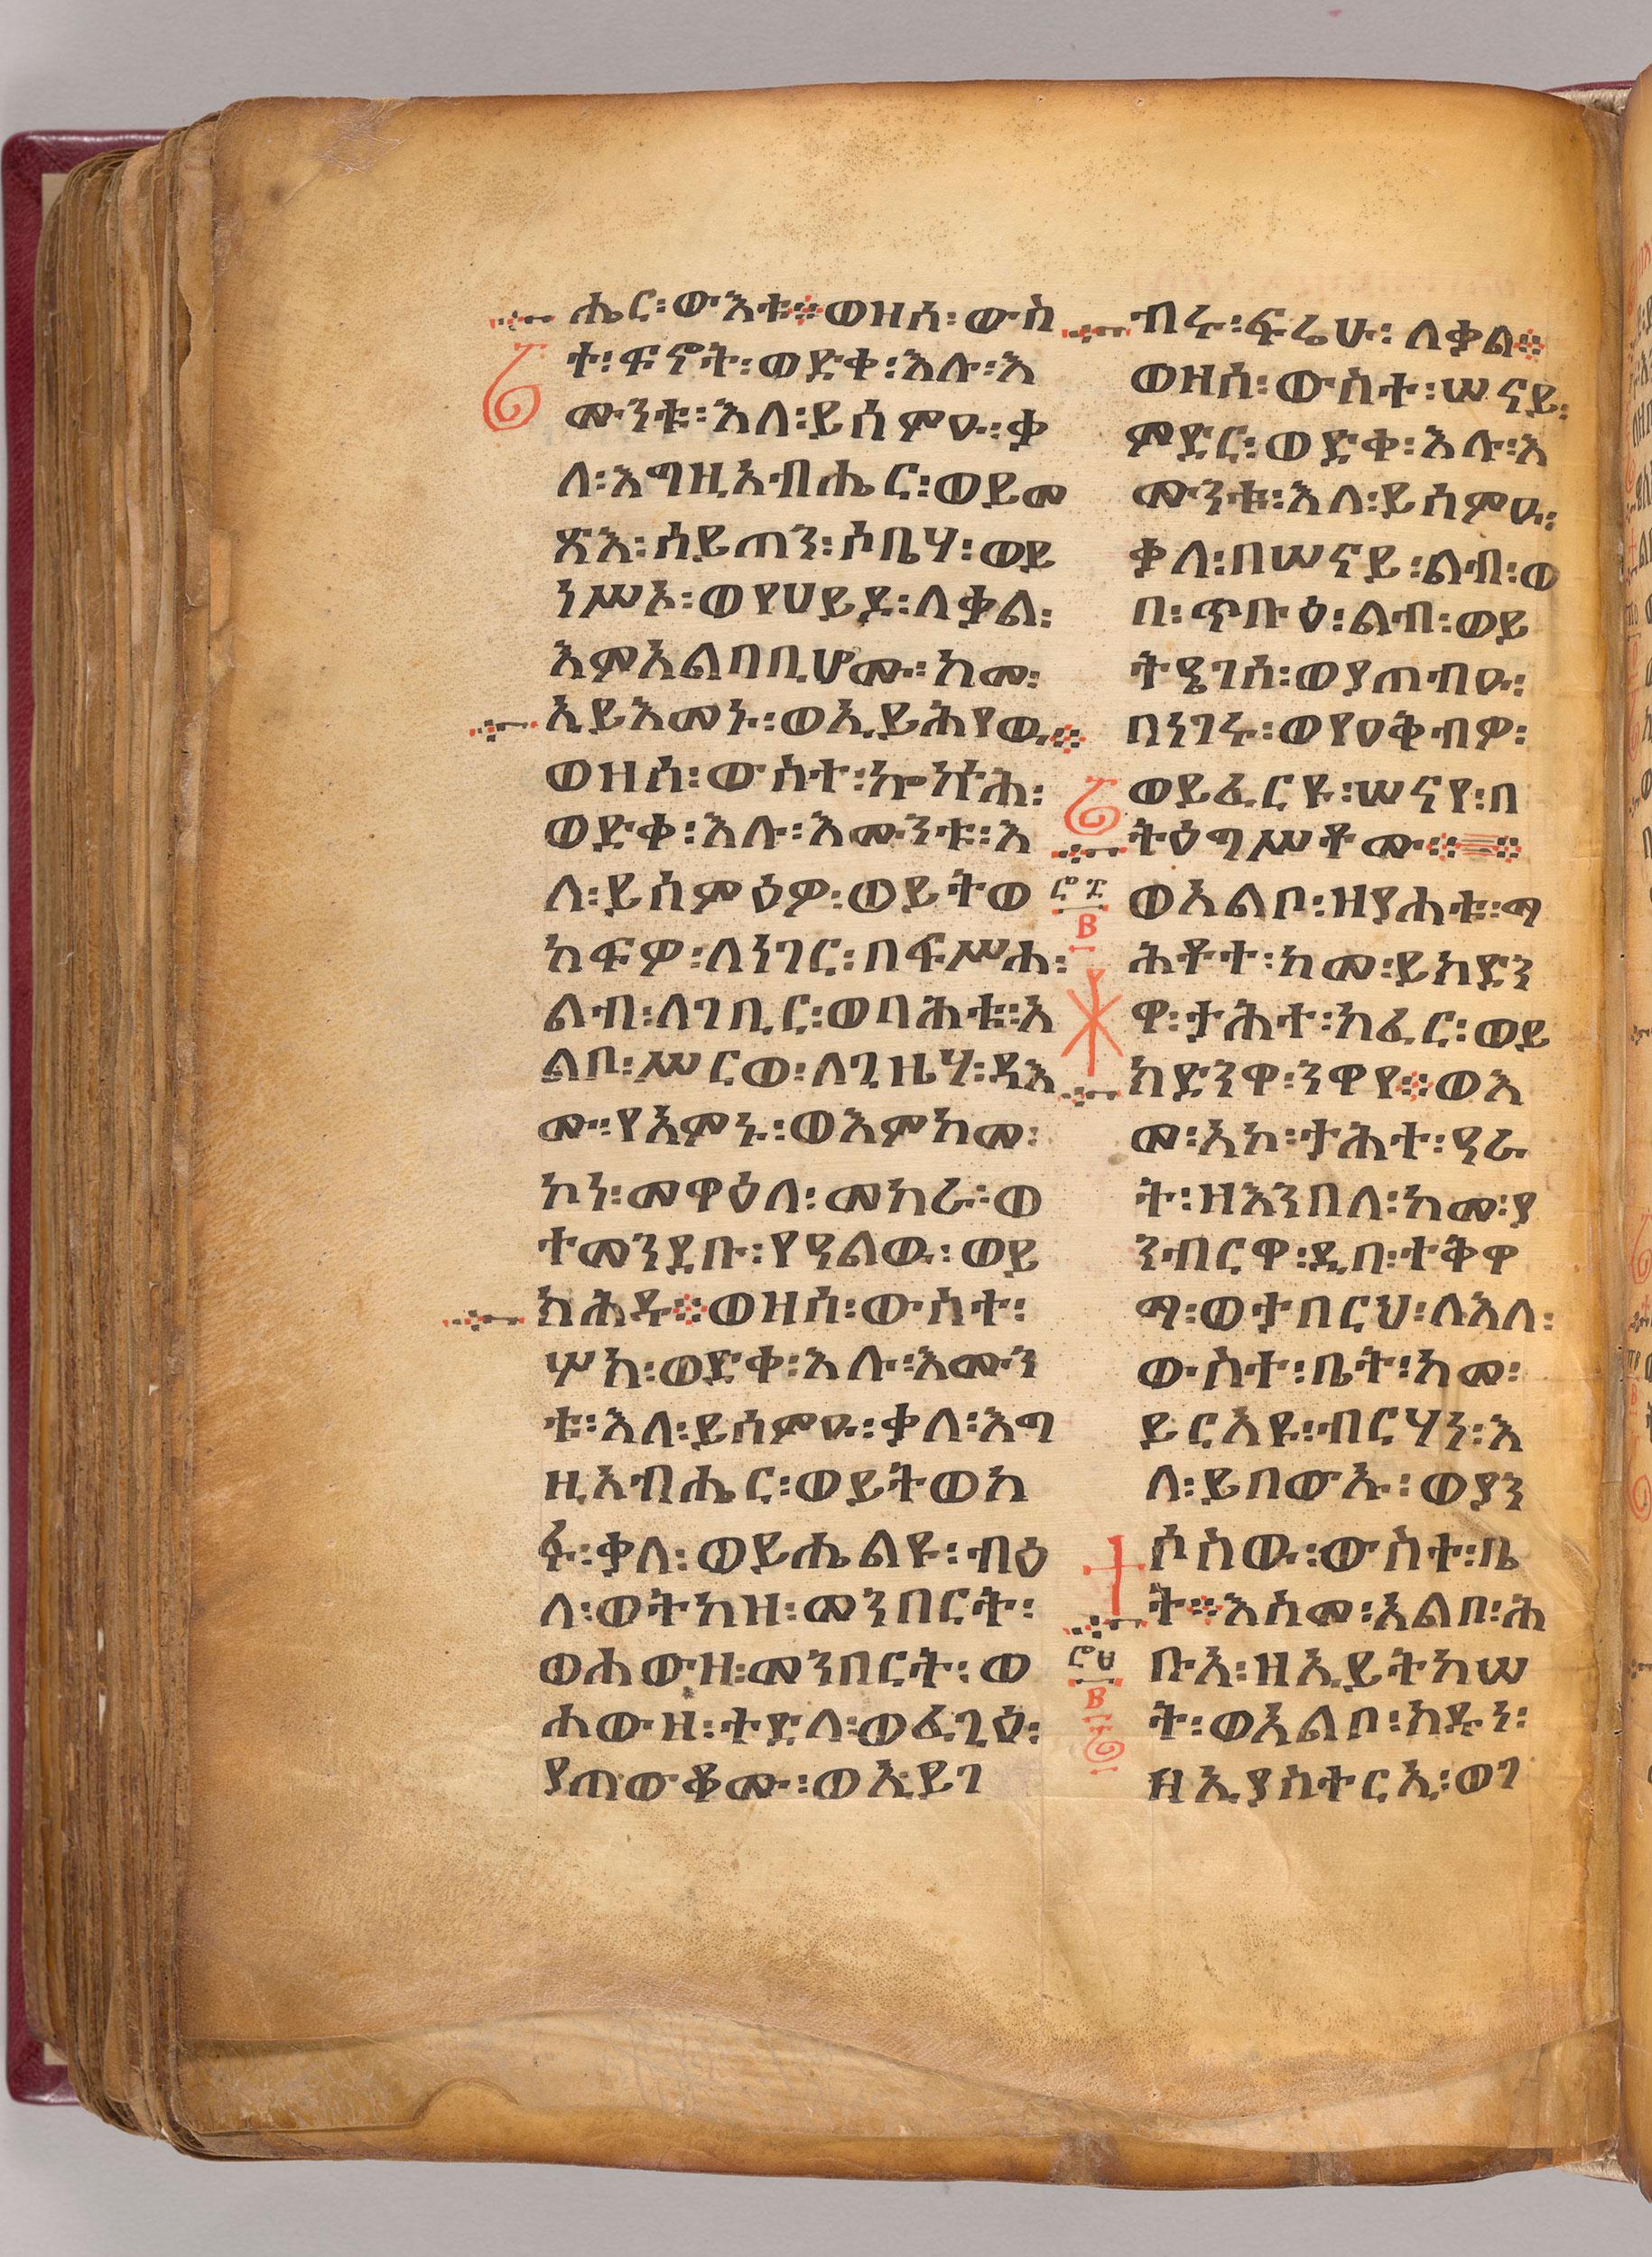 ሔር፡ውእቱ፨ወዘሰ፡ውስ
ተ፡ፍኖት፡ወድቀ፡እሉ፡እ
ሙንቱ፡እለ፡ይሰምዑ፡ቃ
ለ፡እግዚአብሔር፡ወይመ
ጽእ፡ሰይጠን፡ሶቤሃ፡ወይ
ነሥኦ፡ወየሀይዶ፡ለቃል፡
እምአልባቢሆሙ፡ከመ፡
ኢይእመኑ፡ወኢይሕየዉ፨
ወዘሰ፡ውስተ፡ኰኵሕ፡
ወድቀ፡እሉ፡እሙንቱ፡እ
ለ፡ይሰምዕዎ፡ወይትወ
ከፍዎ፡ለነገር፡በፍሥሐ፡
ልብ፡ለገቢር፡ወባሕቱ፡አ
ልቦ፡ሥርወ፡ለጊዜሃ፡ዳእ
ሙ፡የአምኑ፡ወእምከመ፡
ኮነ፡መዋዕለ፡መከራ፡ወ
ተመንደቡ፡የዓልዉ፡ወይ
ክሕዱ፨ወዘሰ፡ውስተ፡
ሦከ፡ወድቀ፡እሉ፡እሙን
ቱ፡እለ፡ይሰምዑ፡ቃለ፡እግ
ዚአብሔር፡ወይትወከ
ፉ፡ቃለ፡ወይሔልዩ፡ብዕ
ለ፡ወትካዘ፡መንበርት፡
ወሐውዘ፡መንበርት፡ወ
ሐውዘ፡ተድላ፡ወፈጊዕ፡
ያጠውቆሙ፡ወኢይገ
ብሩ፡ፍሬሁ፡ለቃል፨
ወዘሰ፡ውስተ፡ሠናይ፡
ምድር፡ወድቀ፡እሉ፡እ
ሙንቱ፡እለ፡ይሰምዑ፡
ቃለ፡በሠናይ፡ልብ፡ወ
በ፡ጥቡዕ፡ልብ፡ወይ
ትዔገሰ፡ወያጠብዑ፡
በነገሩ፡ወየዐቅብዎ፡
ወይፈርዩ፡ሠናየ፡በ
ትዕግሥቶሙ፨
ሮፗ
ወአልቦ፡ዘያሐቱ፡ማ
B
ሕቶተ፡ከመ፡ይክድን
ዋ፡ታሕተ፡ከፈር፡ወይ
ክድንዋ፡ንዋየ፨ወእ
መ፡አኮ፡ታሕተ፡ዓራ
ት፡ዘእንበለ፡ከመ፡ያ
ንብርዋ፡ዲበ፡ተቅዋ
ማ፡ወታበርህ፡ለእለ፡
ውስተ፡ቤት፡ከመ፡
ይርአዩ፡ብርሃነ፡እ
ለ፡ይበውኡ፡ወያን
ሶስዉ፡ውስተ፡ቤ
ት፨እስመ፡አልቦ፡ሕ
ሮፀ
ቡአ፡ዘኢይትከሠ
B
ት፡ወአልቦ፡ከዱን፡
ዘኢያስተርኢ፡ወገ